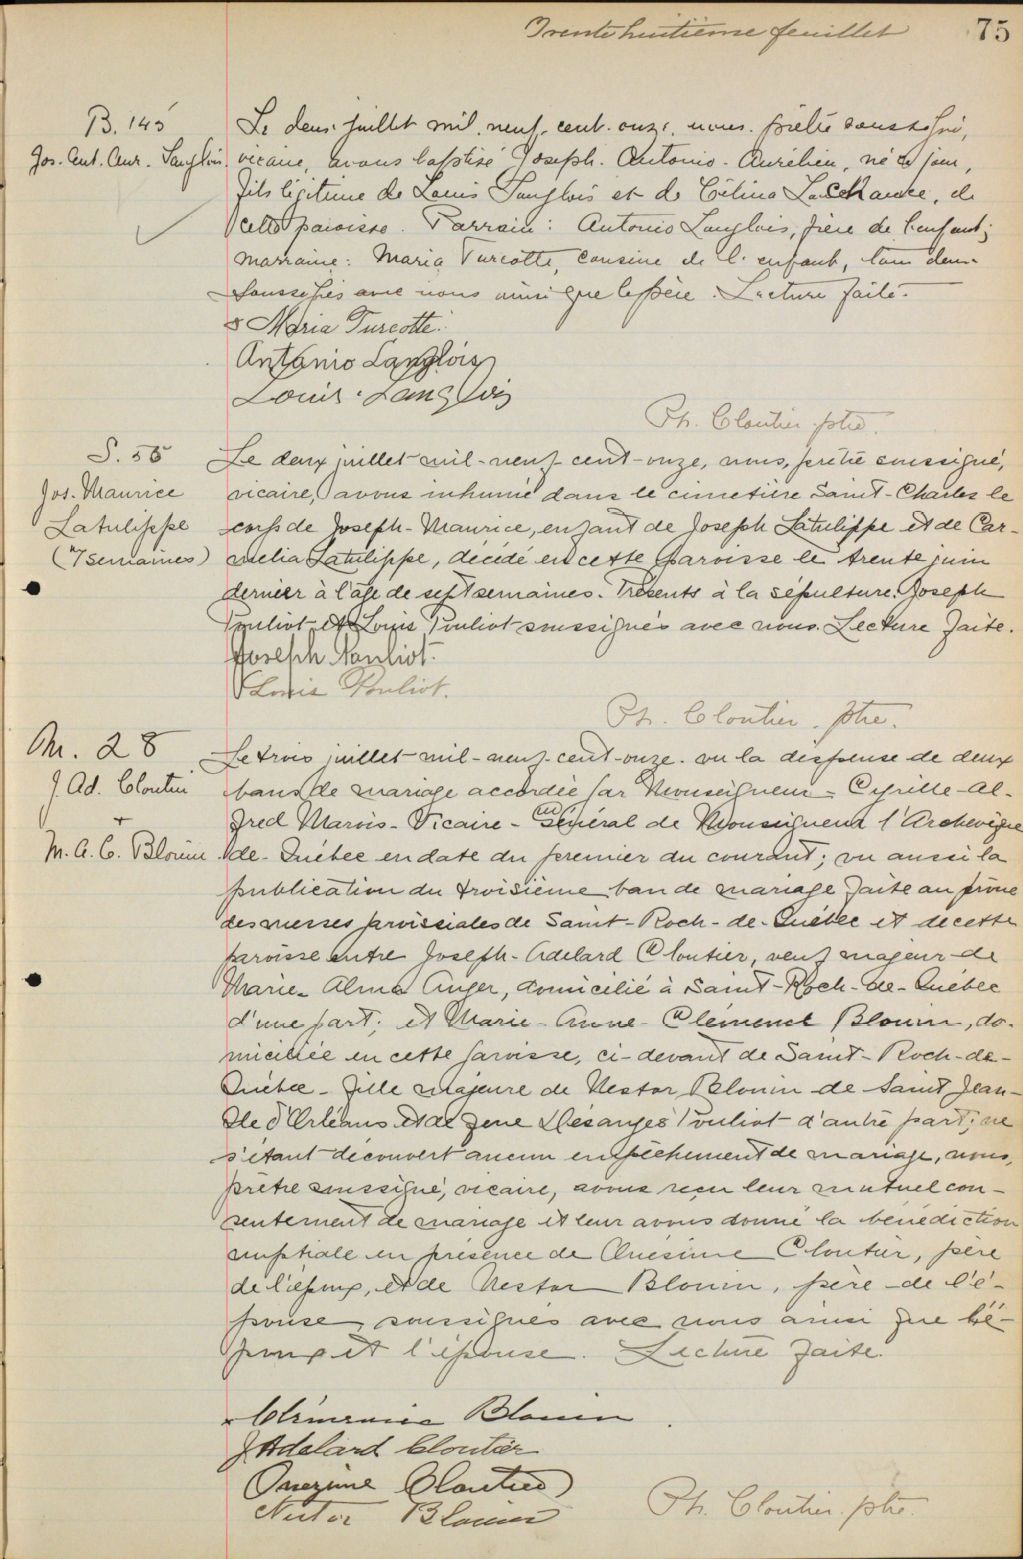 Trente huitième feuillet 75
B. 145
Jos. Ant. Aur. Langlois
Le deux juillet mil neuf cent onze, nous prêtre soussigné,
vicaire, avons baptisé Joseph Antonio Aurélien, né ce jour,
fils légitime de Louis Langlois et de Célina Lachance, de
cette paroisse. Parrain : Antonio Langlois, frère de l'enfant ;
marraine : Maria Turcotte, cousine de l'enfant, tous deux
soussignés avec nous ainsi que le père. Lecture faite.
Maria Turcotte.
Antonio Langlois
Louis Langlois
Ph. Cloutier ptre.
S. 55
Jos. Maurice
Latulippe
(7 semaines)
Le deux juillet mil-neuf-cent-onze, nous, prêtre soussigné,
vicaire, avons inhumé dans le cimetière Saint-Charles le
corps de Joseph-Maurice, enfant de Joseph Latulippe et de Car-
melia Latulippe, décédé en cette paroisse le trente juin
dernier à l'âge de sept semaines. Présents à la sépulture Joseph
Pouliot et Louis Pouliot soussignés avec nous. Lecture faite.
Joseph Pouliot.
Louis Pouliot.
Ph. Cloutier. ptre.
M. 28
J. Ad. Cloutier
+
M. A. C. Blouin
Le trois juillet mil-neuf-cent-onze. vu la dispense de deux
bans de mariage accordée par Monseigneur Cyrille-Al-
fred Marois-Vicaire-Général de Monseigneur l'Archevêque
de Québec en date du premier du courant ; vu aussi la
publication du troisième ban de mariage faite au prône
des messes paroissiales de Saint-Roch-de-Québec et de cette
paroisse entre Joseph-Adelard Cloutier, veuf majeur de
Marie-Alma Auger, domicilié à Saint-Roch-de-Québec
d'une part ; et Marie-Anne-Clémence Blouin, do-
miciliée en cette paroisse, ci-devant de Saint-Roch-de-
Québec-fille majeure de Nestor Blouin de Saint Jean-
Ile d'Orléans et de feue Désanges Pouliot d'autre part ; ne
s'étant découvert aucun empêchement de mariage, nous,
prêtre soussigné, vicaire, avons reçu leur mutuel con-
sentement de mariage et leur avons donné la bénédiction
nuptiale en présence de Onésime Cloutier, père
de l'époux, et de Nestor Blouin, père de l'é-
pouse soussignés avec nous ainsi que l'é-
poux et l'épouse. Lecture faite.
Clémence Blouin
J Adelard Cloutier
Onezime Cloutier
Nestor Blouin
Ph. Cloutier ptre.